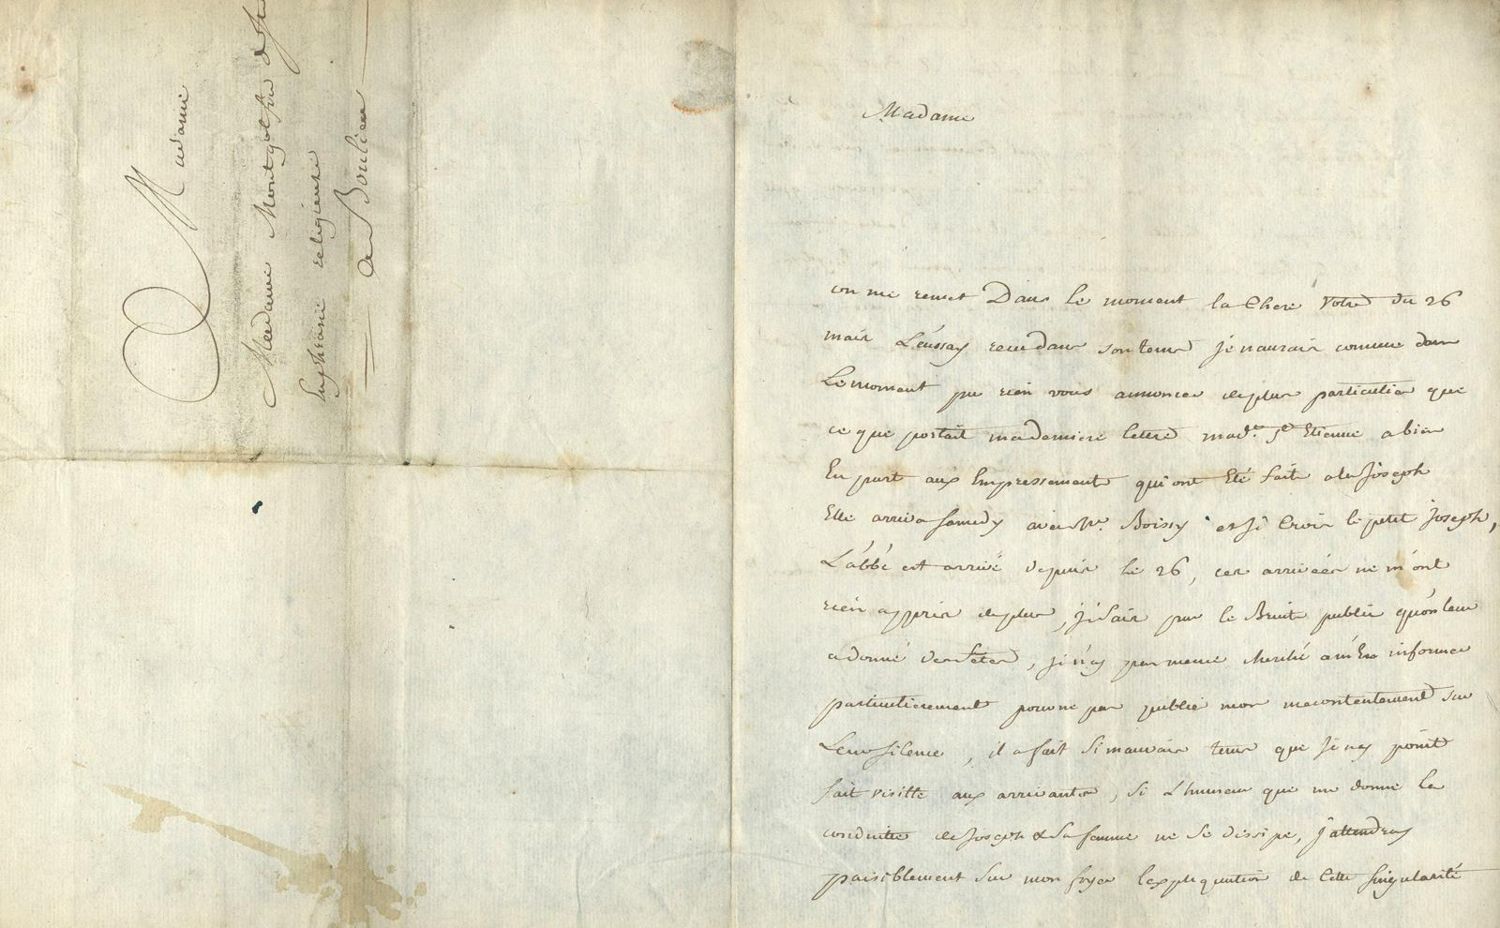 Madame
Madame Montgolfier de St
Euphrasie religieuse
a Boulieu
Madame
on me remet Dans le moment la Chere Votre du 26
mais Leussay recu dans son tems je naurais comme dans
Le moment pu rien vous annoncer de plus particulier que
ce que portait ma derniere lettre mad.e St Etienne a bien
Eu part aux Empressements qui ont Eté fait a la Joseph
Elle arriva samedy avec Mr. Boissy et Je Crois le petit Joseph,
L'abbé est arrivé depuis le 26, ces arrivées ne m'ont
rien appris de plus, je sais par le Bruit public qu'on leur
a donné des fetes, je n'ay pas meme cherché a m'En informer
particulierement pour ne pas publier mon mecontentement sur
Leur silence, il a fait si mauvais tems que Je nay point
fait visitte aux arrivants, si L'humeur que me donne la
conduitte de Joseph & Sa femme ne se dissipe, j'attendray
paisiblement sur mon foyer l'expliquation de Cette singularité